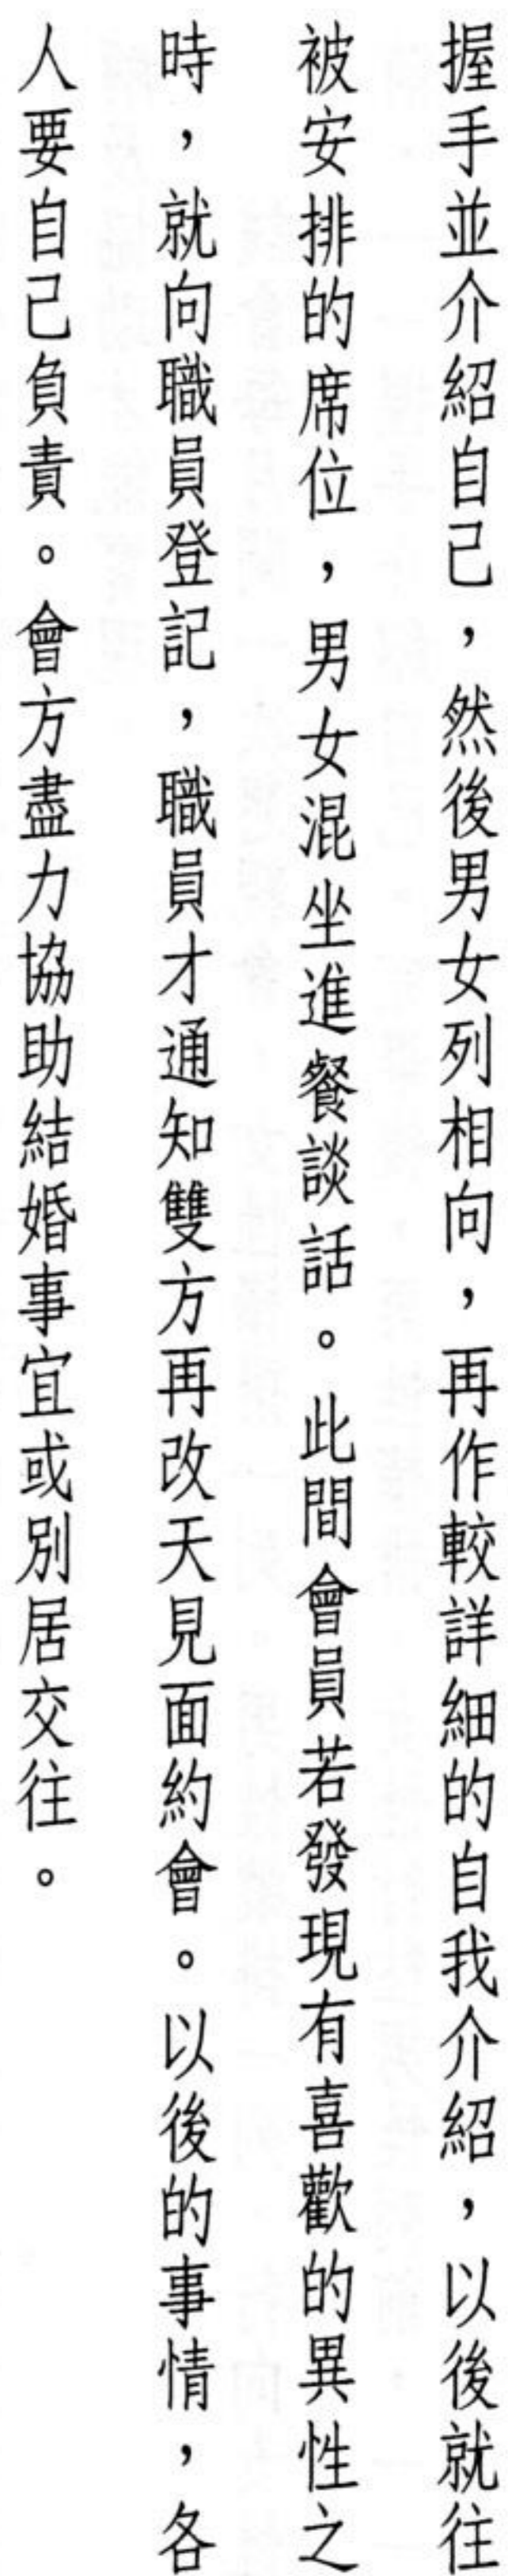 握手並介紹自己，然後男女列相向，再作較詳細的自我介紹，以後就往
被安排的席位，男女混坐進餐談話。此間會員若發現有喜歡的異性之
時，就向職員登記，職員才通知雙方再改天見面約會。以後的事情，各
人要自己負責。會方盡力協助結婚事宜或別居交往。